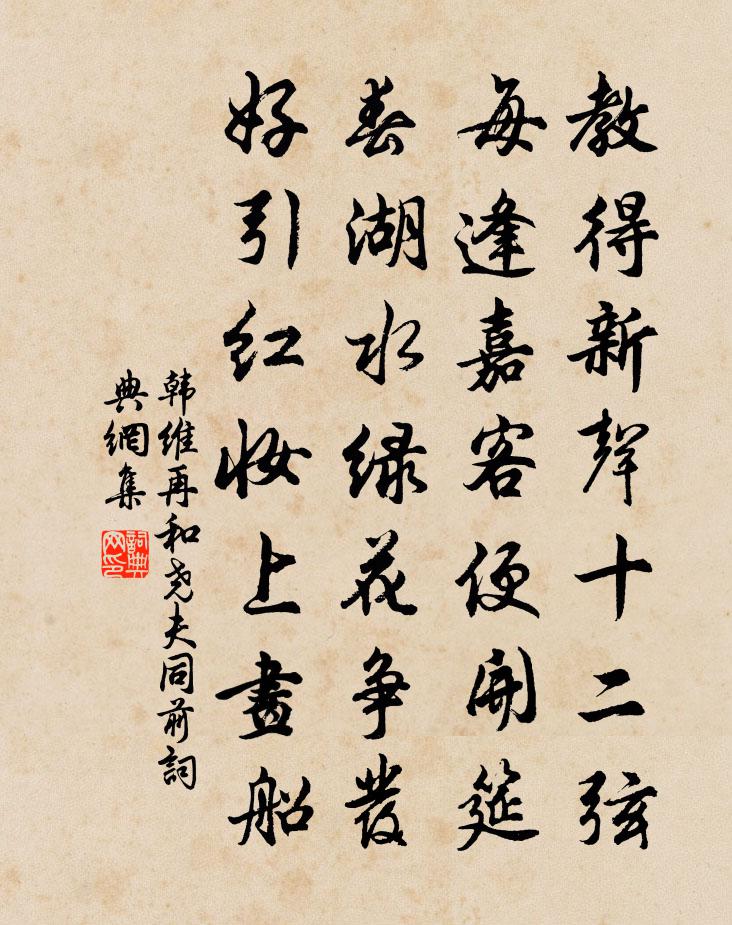 教得新聲十二弦
每逢嘉客便開筵
春湖水绿花争發
好引红妆上畫船
韩維再和尧夫同前詞
典網集
詞典
网印